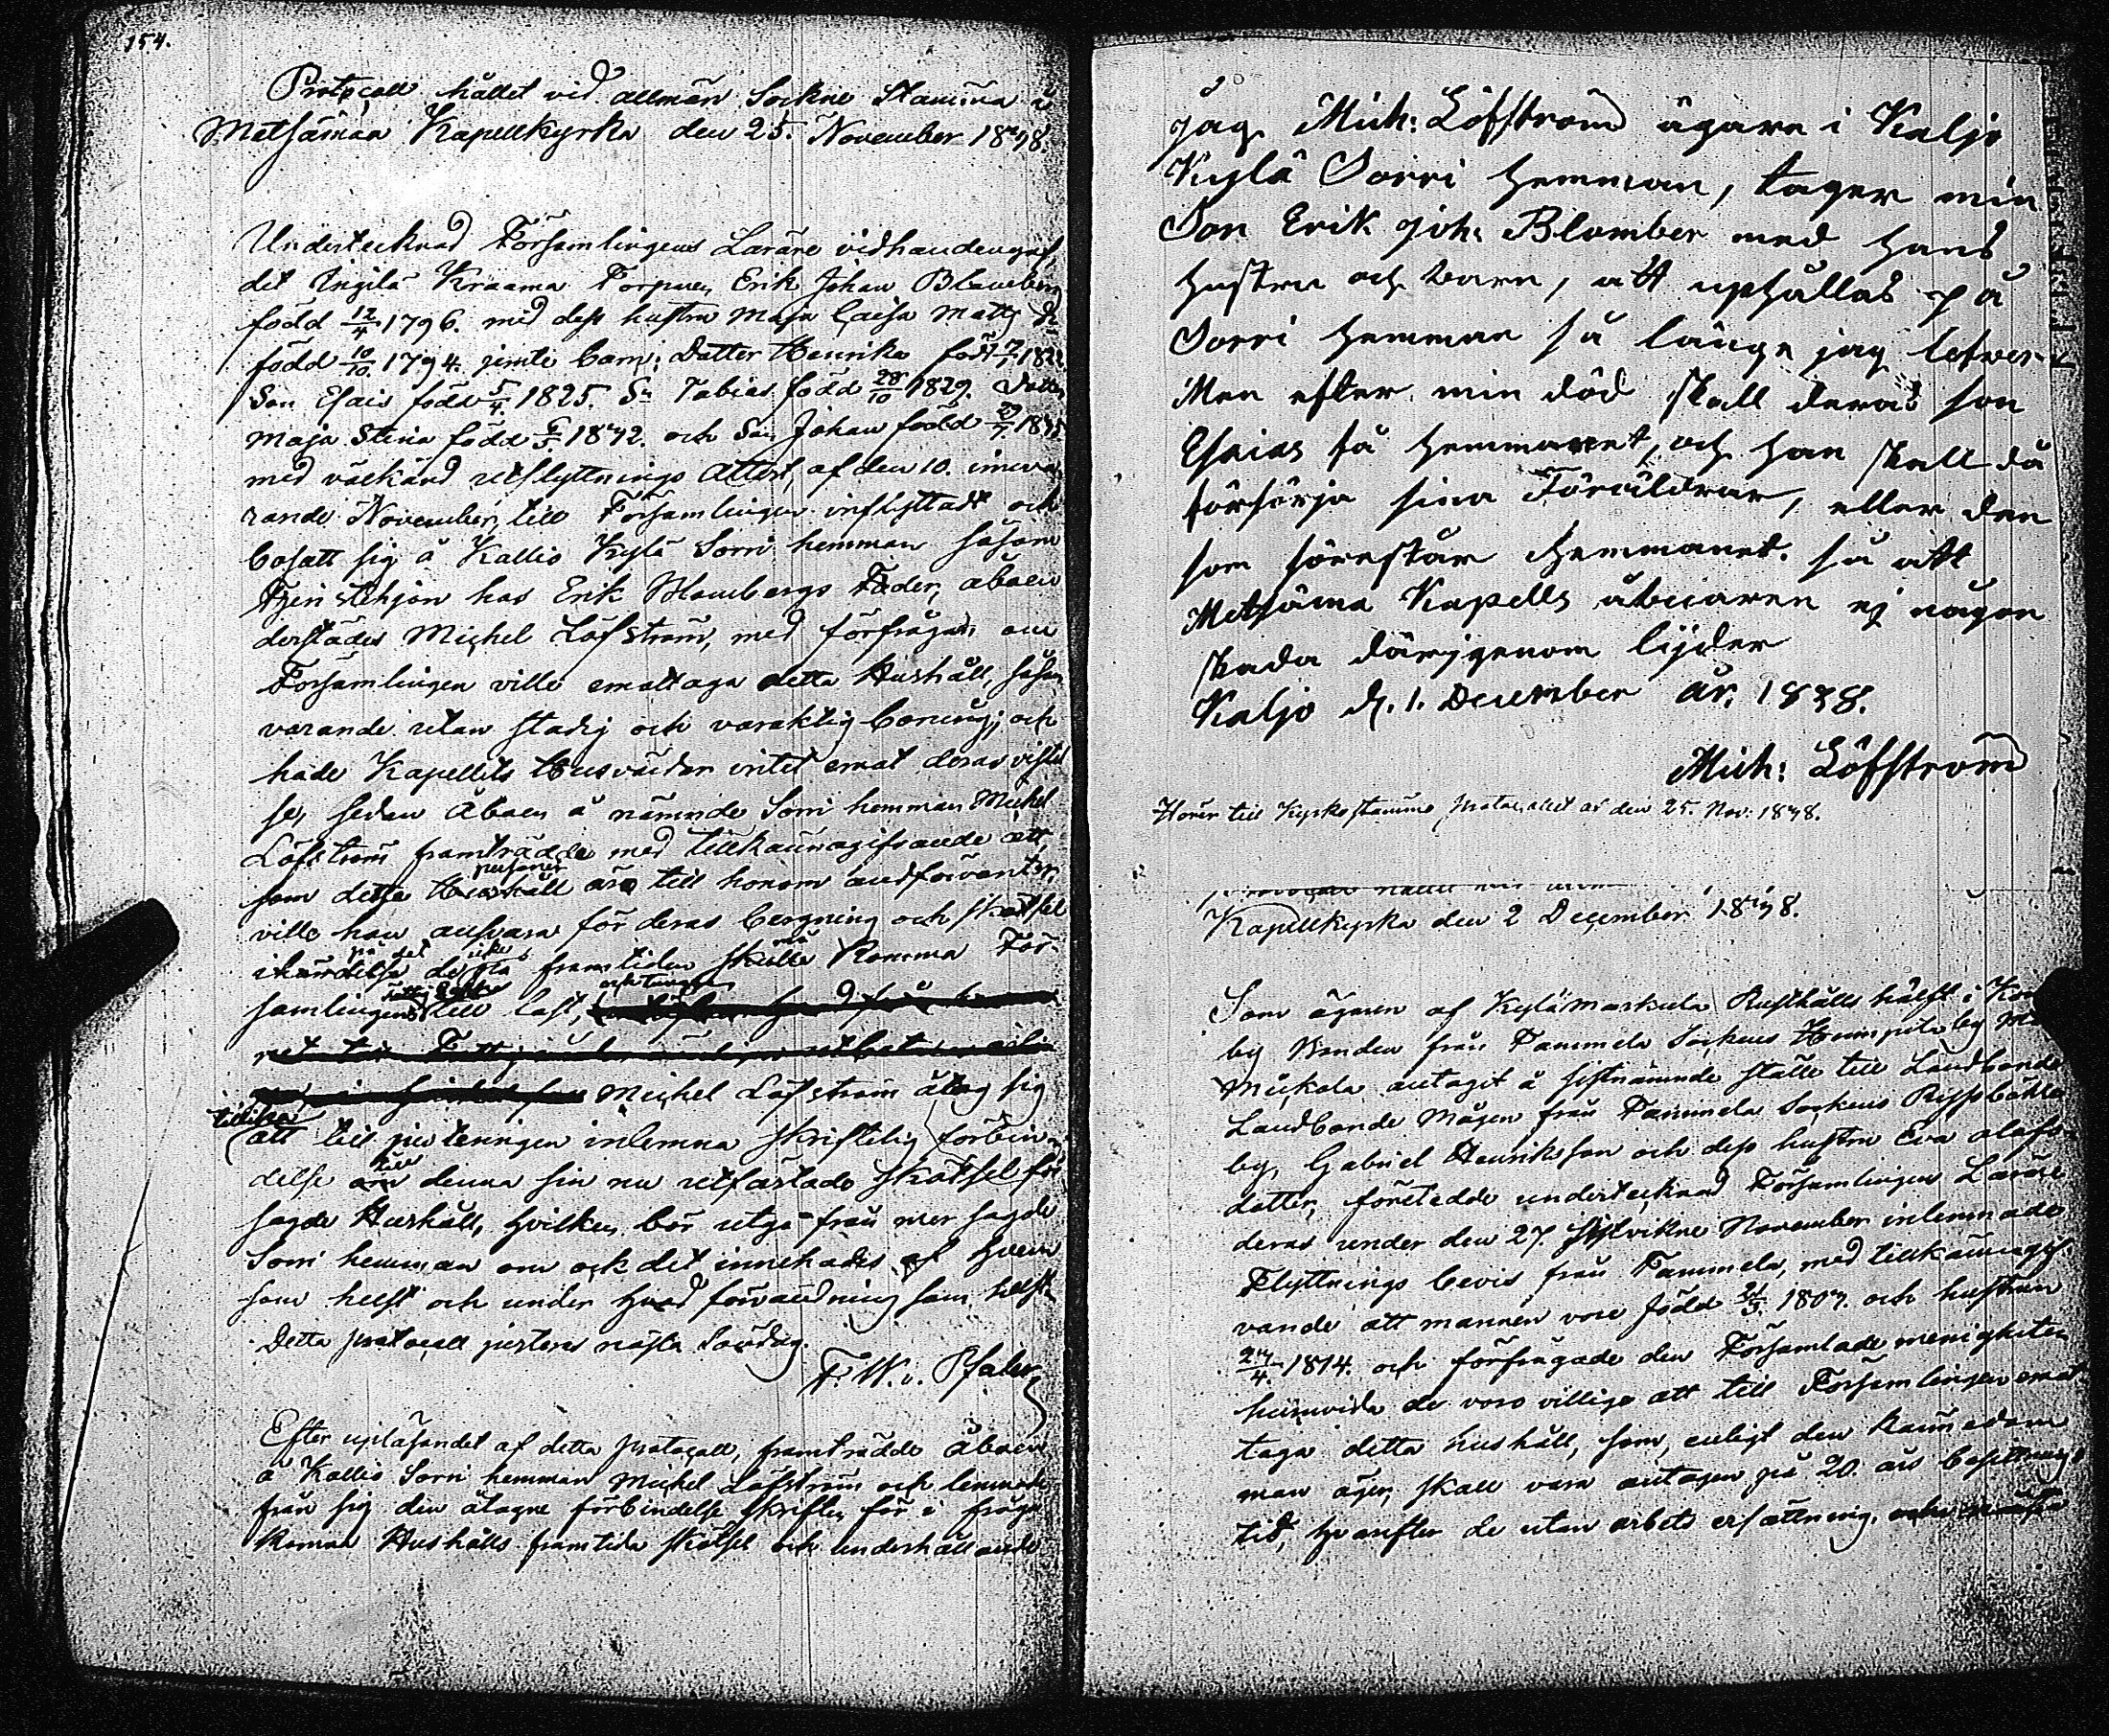 154.
Protocoll hållet vid allmän Sockne Stämma i
Metsämaa Kapellkyrka den 25. November 1838.
Undertecknad Församlingens Lärare vidhandengaf,
det Ungilä Kraama Torparen Erik Johan Blomberg
född 12/4 1796. med dess hustru Maja Caisa Matts Dr
född 10/10 1794. jemte barn: Dotter Henrika född
Son Esais född 5/4 1825. Sn Tobias född 28/10 1829. Dotter
Maja Stina född 1832. och Son Johan född
med välkänd utflyttnings Attest, af den 10. inneva
rande November, till Församlingen inflyttadt och
bosatt sig å Kallio Kylä Sorri hemman såsom
hos Erik Blombergs Fader, åboen
derstädes Michel Löfström, med förfrågan om
Församlingen ville emottaga detta Hushåll, såsom
varande utan stadig och varaktig boning; och
hade Kapellets Husvärdar intet emot deras vistel
se, sedan Åboen å nämnde Sorri hemman Michel
Löfström framträdde med tillkännagifvande att,
personer
som detta Hushåll äro till honom andförvanter,
ville han ansvara för deras bergning och skötsel
på det icke må
i händelse de framtiden skulle komma För-
och tunga
samlingens till last,
Michel Löfström åtog sig
tillika
att till justeringen inlemna skriftelig förbin-
till
delse om denna sin nu utfästade skötsel för
sagde Hushåll, hvilken bör utgå från mer sagde
Sorri hemman om ock det innehades af hvem
som helst och under hvad förvandning som helst.
Detta protocoll justeras nästa Söndag.
F. W. v. Pfaler
Efter uplåsandet af detta protocoll, framträdde Åboen
å Kallio Sorri hemman Michel Löfström och lemnade
från sig den åtagne förbindelse skriften för i fråga
komne Hushålls framtida skötsel och underhållande
Jag Mich: Löfström ägare i Kaljo
Kylä Sorri Hemman, tager min
Son Erik Joh: Blomber med hans
hustru och barn, att uphållas på
Sorri hemman så länge jag lefver
Men efter min död skall deras son
Esaias få hemmanet, och han skall då
försörja sina Föräldrar, eller den
som förestår Hemmanet. så att
Metsäma Kapells åbuaren ej någon
skada därigenom lijder
Kaljo d. 1. December år. 1838.
Mich: Löfström
Hörer till Kyrkostämmo protocollet af den 25. Nov: 1838.
Kapellkyrka den 2 December 1838.
Som ägaren af Kylämarkula Rusthålls hälft i
by Bonden från Tammela Sockens Humpila by
Mickola antagit å sistnämnde ställe till Landbonde
Landbonde Mågen från Tammela Sockens
by, Gabriel Henriksson och dess hustru Eva Olofs
dotter, företedde undertecknad Församlingens Lärare
deras under den 27 sistvikne November inlemnade
Flyttnings bevis från Tammela, med tillkännagif-
vande att mannen vore född 1807. och hustrun
1814. och förfrågade den Församlade menigheten
huruvida de voro villige att till Församlingen emot
taga detta hushåll, som, enligt den kännedom
man äger, skall vara antagen på 20. års besittnings
tid, hvarefter de utan arbets ersättning,